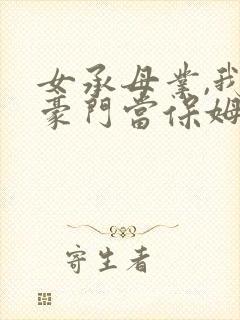 女承母業,我
豪門當保姆
寄生者